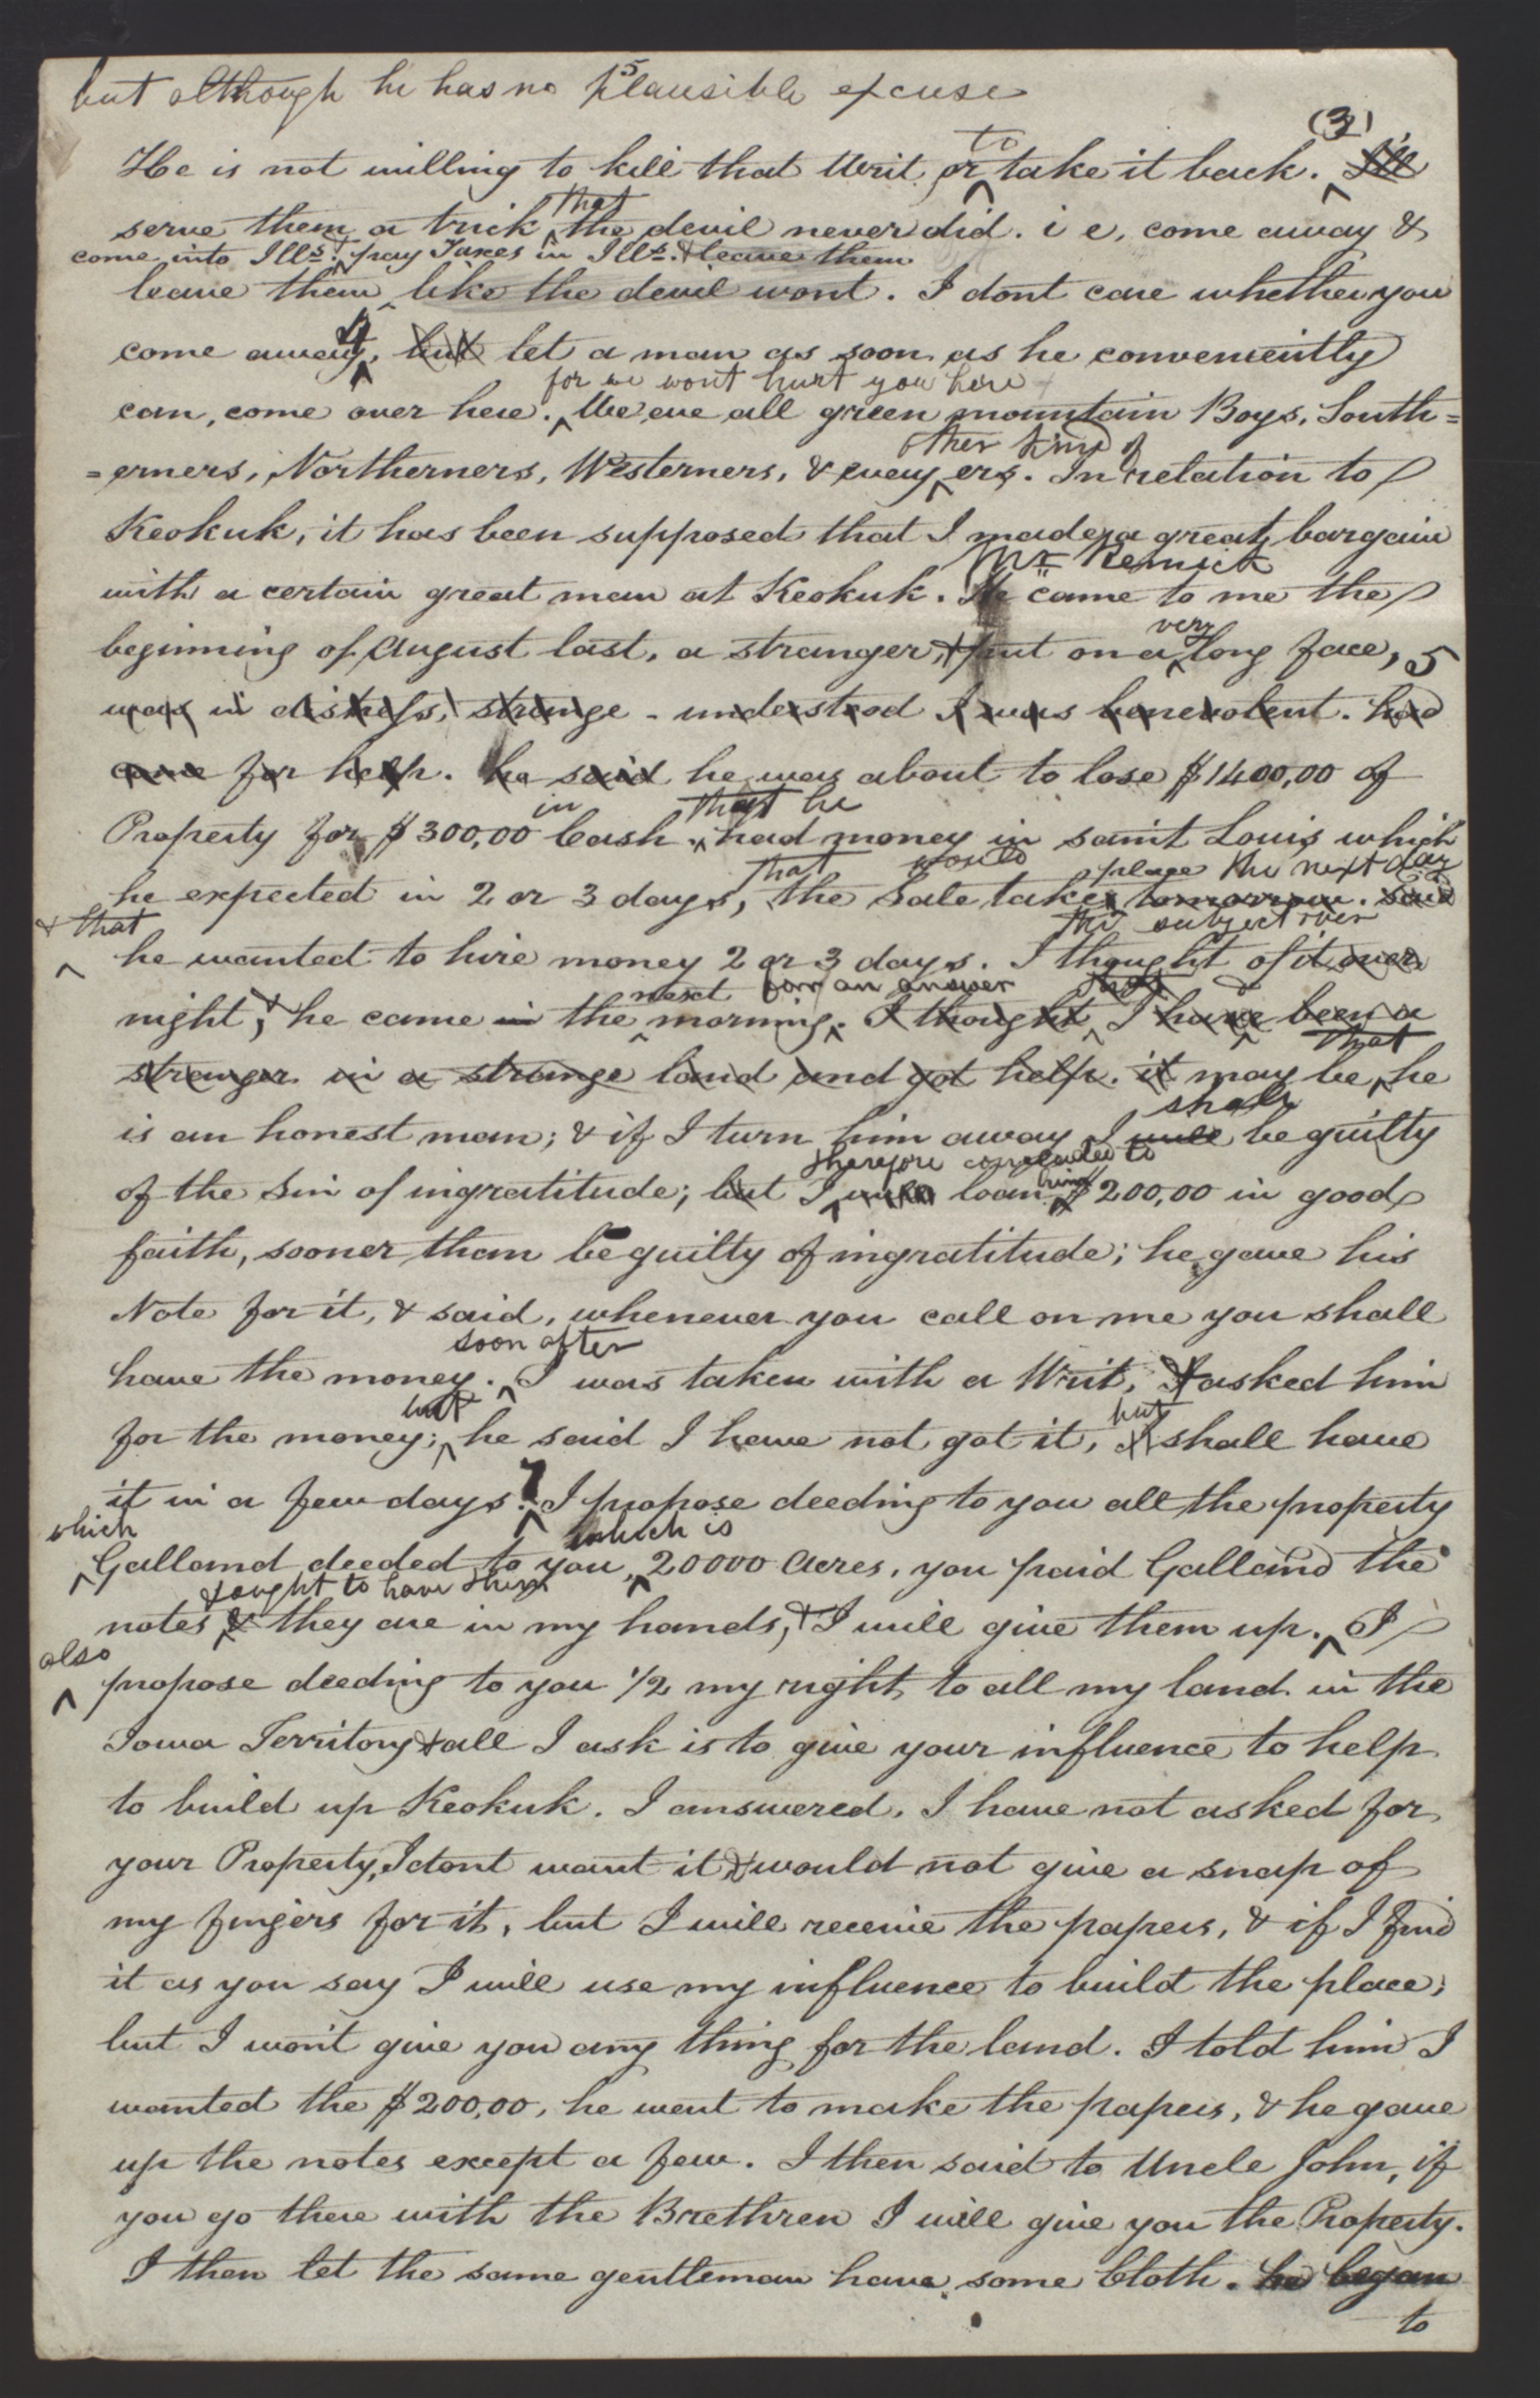 but although he has no plausible excuse
5
(3)
to
He is not willing to kill that Writ or take it back. I'll
that
serve them a trick the devil never did. i e, come away &
come into Ills. & pay Taxes in Ills. & leave them
leave them like the devil wont. I dont care whether you
4
come away, but let a man as soon as he conveniently
for we wont hurt you here
can, come over here. We are all green mountain Boys, South=
other kind of
=erners, Northerners, Westerners, & every ers. In relation to
Keokuk, it has been supposed that I made a great bargain
Mr. Remick
with a certain great man at Keokuk. He came to me the
very
beginning of August last, a stranger, & put on a long face, 5
was in distress, strange - understood I was benevolent. had
came for help. he said he was about to lose $1400,00 of
in that he
Property for $300,00 Cash. had money in saint Louis which
that would place the next day
he expected in 2 or 3 days, the Sale takes tomorrow. said
& that the subject over
he wanted to hire money 2 or 3 days. I thought of it over
next for an answer that
night, & he came in the morning. I thought I have been a
that
stranger in a strange land and got help. it may be, he
shall
is an honest man; & if I turn him away I will be guilty
therefore concluded to
him
of the Sin of ingratitude; but I will loan $200,00 in good
faith, sooner than be guilty of ingratitude; he gave his
Note for it, & said, whenever you call on me you shall
soon after
have the money. I was taken with a Writ, I asked him
but but
for the money; he said I have not got it, I shall have
7
it in a few days. I propose deeding to you all the property
which which is
Galland deeded to you, 20000 Acres, you paid Galland the
& ought to have them
notes & they are in my hands, & I will give them up. I
also
propose deeding to you 1/2 my right to all my land in the
Iowa Territory & all I ask is to give your influence to help
to build up Keokuk. I answered, I have not asked for
your Property, I dont want it & would not give a snap of
my fingers for it, but I will receive the papers, & if I find
it as you say I will use my influence to build the place;
but I won't give you any thing for the land. I told him I
wanted the $200,00, he went to make the papers, & he gave
up the notes except a few. I then said to Uncle John, if
you go there with the Brethren I will give you the Property.
I then let the same gentleman have some Cloth. he began
to